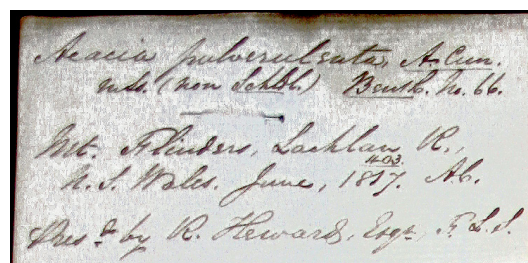 Acacia pulverulenta, A. Cun.
mss. (non Schltl.) Benth. no. 66.
Mt. Flinders, Lachlan R.,
1103.
N. S. Wales. June, 1817. A.C.
Pres.d by R. Heward, Esqr. F.L.S.